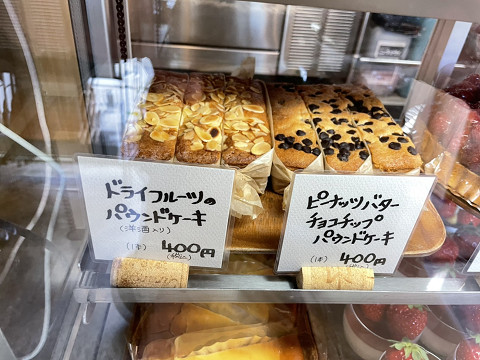 ドライフルーツの
パウンドケーキ
(洋酒入り)
(1本) 400円
(税込)
ピーナッツバター
チョコチップ
パウンドケーキ
(1本) 400円
(税込)